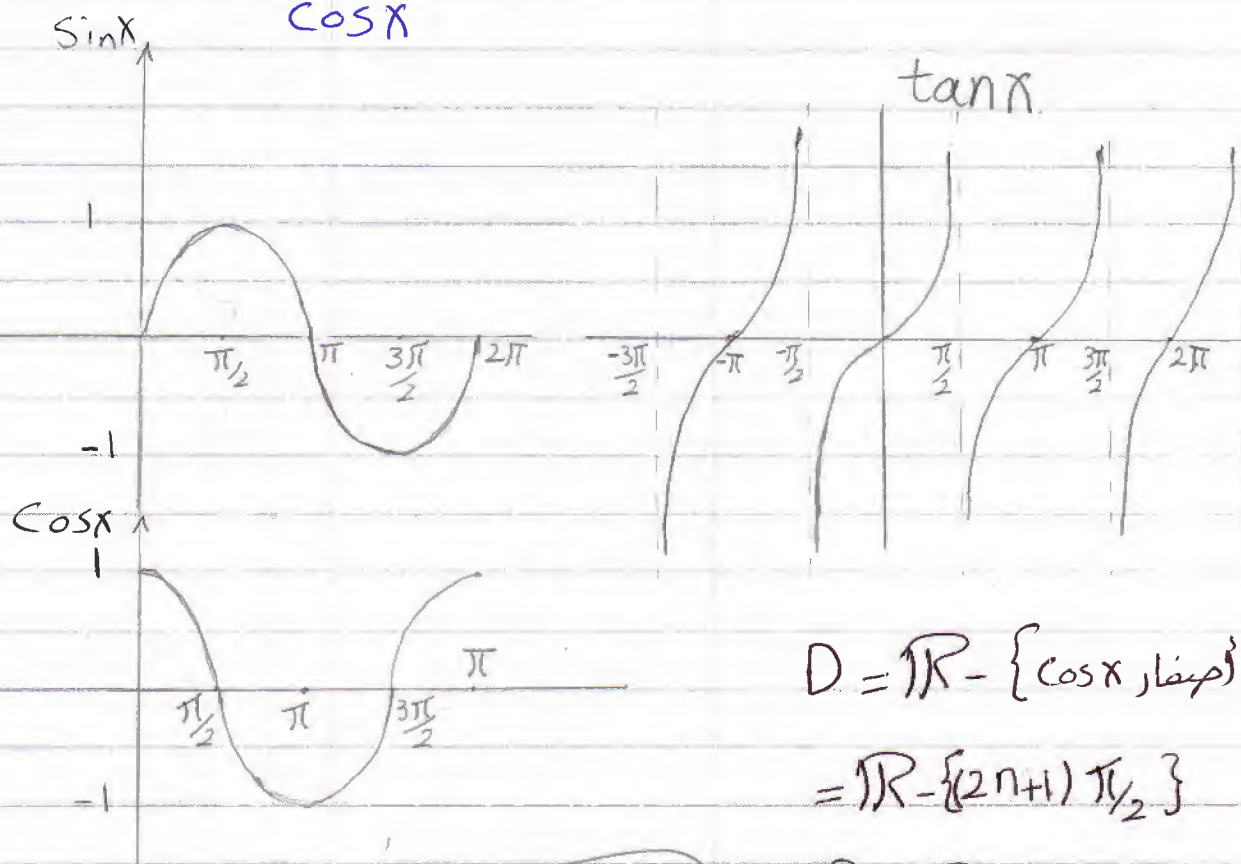 Cos x
Sin x
1
π/2 π 3π/2 2π
-1
tan x
-3π/2 -π -π/2 π/2 π 3π/2 2π
Cos x
1
π/2 π 3π/2 π
-1
D = ℝ - {أصفار cos x}
= ℝ - {(2n+1) π/2}